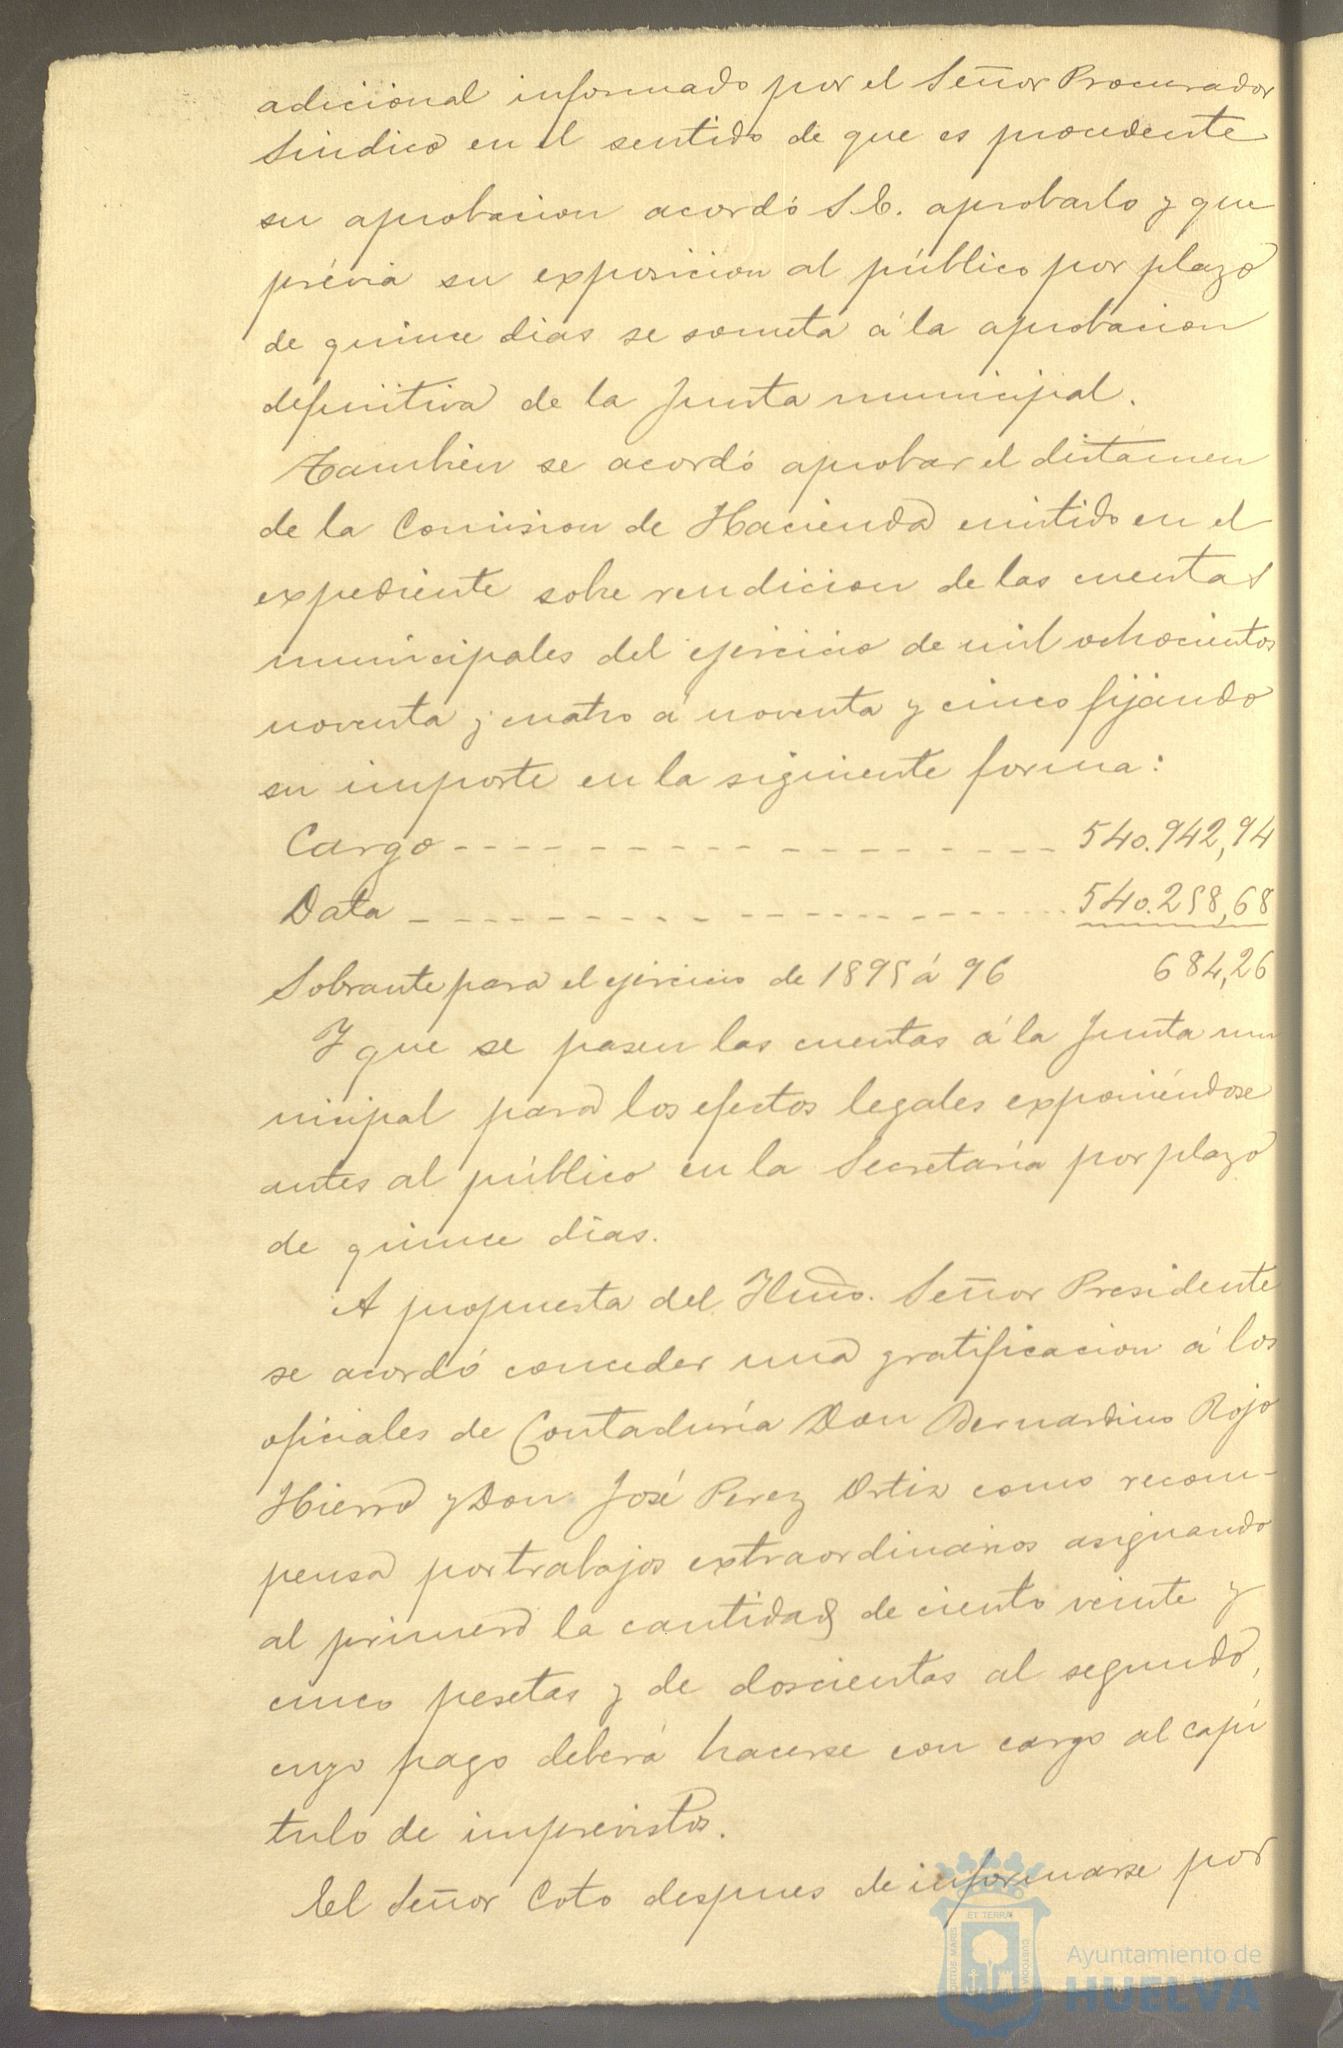 adicional informado por el Señor Procurador
Sindico en el sentido de que es procedente
su aprobacion acordó S.E. aprobarlo y que
prévia su exposicion al público por plazo
de quince dias se someta á la aprobacion
definitiva de la Junta municipal.
Tambien se acordó aprobar el dictamen
de la Comision de Hacienda emitido en el
expediente sobre rendicion de las cuentas
municipales del ejercicio de mil ochocientos
noventa y cuatro á noventa y cinco fijando
su importe en la siguiente forma:
Cargo 540.942,94
Data 540.258,68
Sobrante para el ejercicio de 1895 á 96 684,26
Y que se pasen las cuentas á la Junta mu
nicipal para los efectos legales exponiéndose
antes al público en la Secretaría por plazo
de quince dias.
A propuesta del Iltmo. Señor Presidente
se acordó conceder una gratificacion á los
oficiales de Contaduría Don Bernardino Rojo
Hierro y Don José Perez Ortiz como recom-
pensa por trabajos extraordinarios asignando
al primero la cantidad de ciento veinte y
cinco pesetas y de doscientas al segundo,
cuyo pago deberá hacerse con cargo al capí
tulo de imprevistos.
El Señor Coto despues de informarse por
PORTUS MARIS ET TERRAE CUSTODIA
Ayuntamiento de
HUELVA